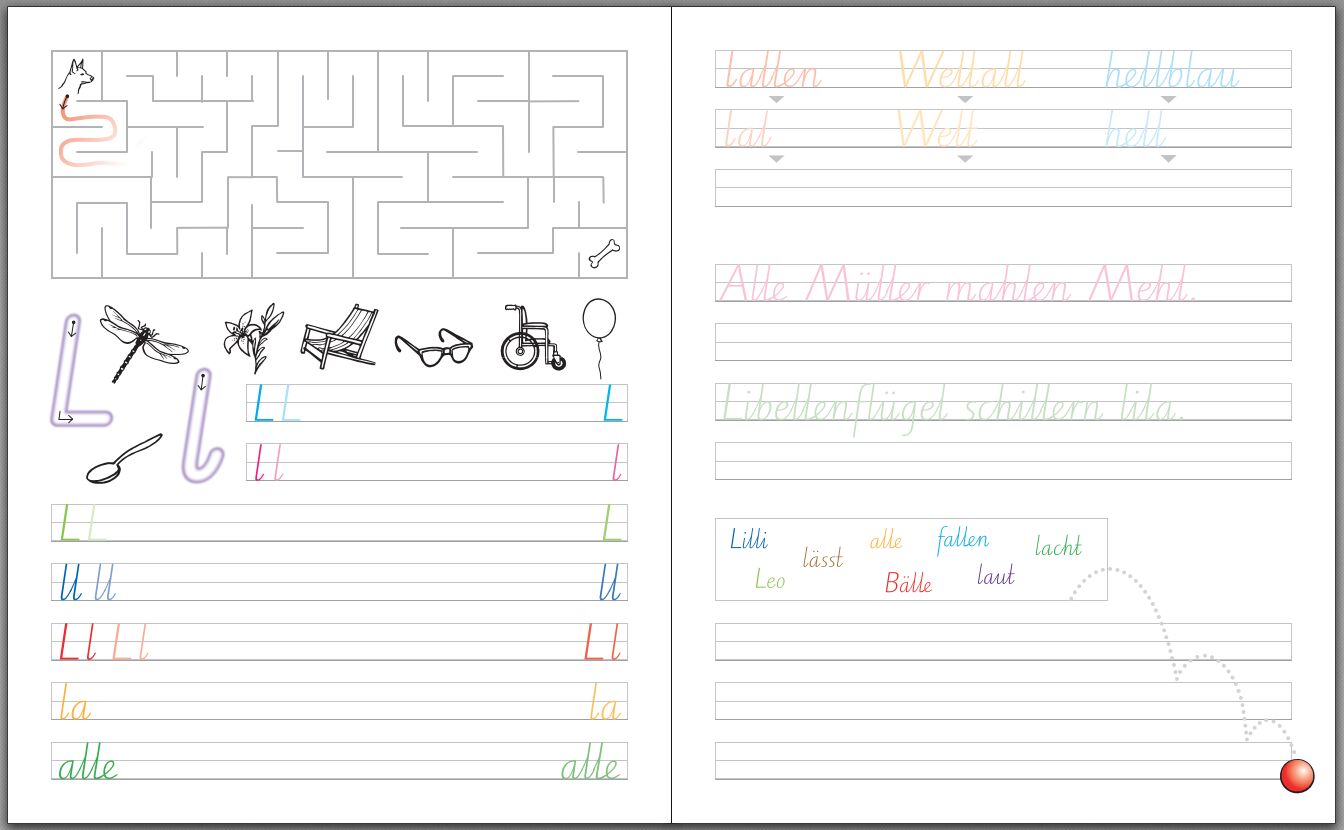 L
l
L L L
l l l
L L L
ll ll ll
Ll Ll Ll
la la
alle alle
lallen Weltall hellblau
lal Welt hell
Alle Müller mahlen Mehl.
Libellenflügel schillern lila.
Lilli lässt alle fallen lacht
Leo Bälle laut